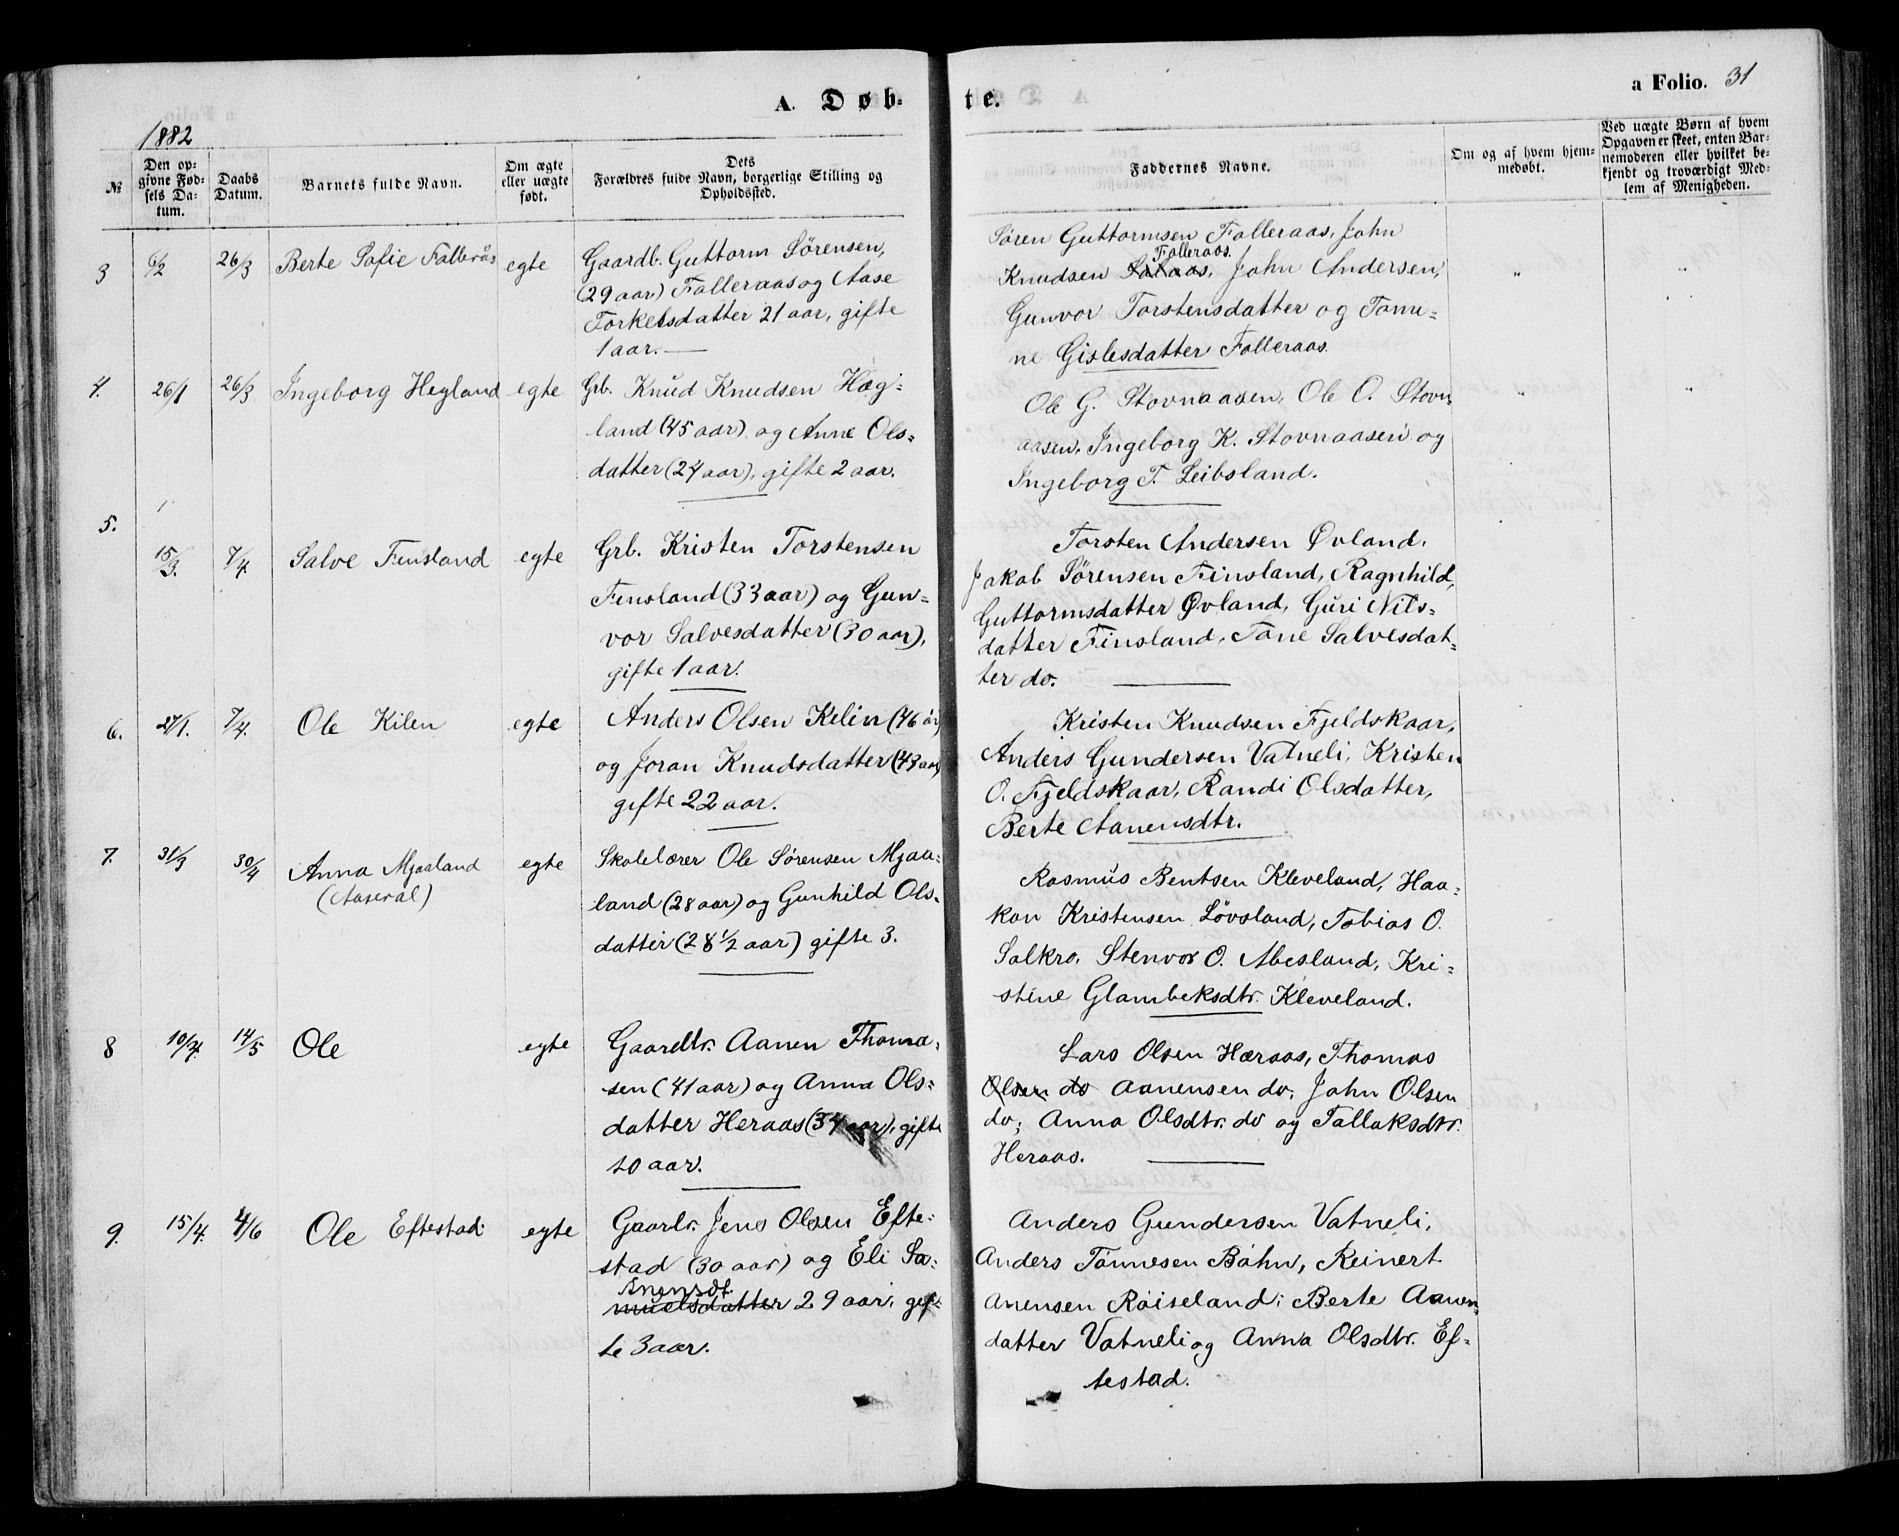 A. Døb-
te.
a Folio. 31
1882
№
Den op-
givne Fød-
sels Da-
tum.
Daabs
Datum.
Barnets fulde Navn.
Om ægte
eller uægte
født.
Dets
Forældres fulde Navn, borgerlige Stilling og
Opholdssted.
Faddernes Navne.
Om og af hvem hjem-
medøbt.
Ved uægte Børn af hvem
Opgaven er skeet, enten Bar-
nemoderen eller hvilket be-
kjendt og troværdigt Med-
lem af Menigheden.
3
6/2
26/3
Berte Sofie Fallerås
egte
Gaardb. Guttorm Sörensen,
(29 aar) Falleraas og Aase
Torkelsdatter 21 aar, gifte
1 aar.
Sören Guttormsen Falleraas, John
Falleraas.
Knudsen John Andersen,
Gunvor Torstensdatter og Tomi-
ne Gislesdatter Falleraas.
"
"
4.
26/1
26/3
Ingeborg Hegland
egte
Grb. Knud Knudsen Hæg-
land (45 aar) og Anne Ols-
datter (24 aar), gifte 2 aar.
Ole G. Stovnaasen, Ole O. Stovn-
aasen, Ingeborg K. Stovnaasen og
Ingeborg T. Leibsland.
"
"
5.
15/3.
7/4.
Salve Finsland
egte
Grb. Kristen Torstensen
Finsland (33 aar) og Gun-
vor Salvesdatter (30 aar),
gifte 1 aar.
Torsten Andersen Øvland,
Jakob Sörensen Finsland, Ragnhild,
Guttormsdatter Øvland, Guri Nils-
datter Finsland, Tone Salvesdat-
ter do.
6.
27/1.
7/4.
Ole Kilen
egte
Anders Olsen Kilen (46 år)
og Joran Knudsdatter (43 aar)
gifte 22 aar.
Kristen Knudsen Fjeldskaar,
Anders Gundersen Vatneli, Kristen
O. Fjeldskaar, Randi Olsdatter,
Berte Aanensdtr.
7.
31/3
30/4
Anna Mjaaland
(Aaseral)
egte
Skolelærer Ole Sörensen Mjaa-
land (28 aar) og Gunhild Ols-
datter (28 1/2 aar) gifte 3.
Rasmus Bentsen Kleveland, Haa-
kon Kristensen Lövsland, Tobias O.
Solkro, Stenvor O. Abesland, Kri-
stine Glambeksdtr. Kleveland.
8
10/4.
14/5
Ole
egte
Gaardbr. Aanen Thoma-
sen (41 aar) og Anna Ols-
datter Heraas (34 aar), gifte
10 aar.
Lars Olsen Hæraas, Thomas
Olsen do Aanensen do, John Olsen
do; Anna Olsdtr. do og Tallaksdtr.
Heraas.
9.
15/4.
4/6
Ole Eftestad
egte
Gaarbr. Jens Olsen Efte-
stad (30 aar) og Eli Sa-
Anensdt.
muelsdatter 29 aar, gif-
te 3 aar.
Anders Gundersen Vatneli,
Anders Tönnesen Bahn, Reinert
Anensen Röiseland; Berte Aanen-
datter Vatneli og Anna Olsdtr. Ef-
testad.